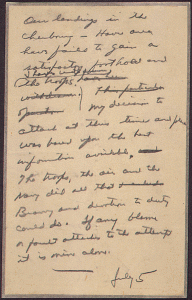 Our landings in the
Cherbourg - Havre area
have failed to gain a
satisfactory foothold and
the troops have been
withdrawn. This particular
My decision to
attack at this time and place
was based upon the best
information available.
The troops, the air and the
Navy did all that
Bravery and devotion to duty
could do. If any blame
or fault attaches to the attempt
it is mine alone.
July 5